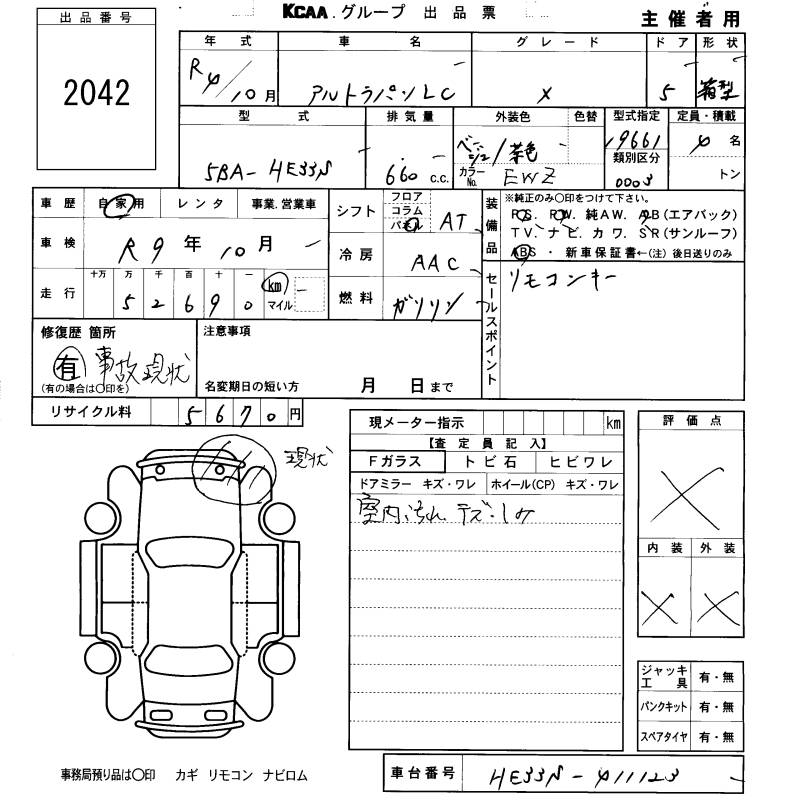 KCAA.グループ 出品票
主催者用
出品番号
2042
年式 車名 グレード ドア 形状
R4/10月 アルトラパンLC X 5 箱型
型式 排気量 外装色 色替 型式指定 定員・積載
5BA-HE33S 660 c.c. ベージュ/茶色 19661 4名
カラーNo. EWZ 類別区分 0003 トン
車歴 自家用 レンタ 事業.営業車
車検 R9年10月
走行 十万 万 千 百 十 一
52690 km マイル
シフト フロア コラム パネル AT
冷房 AAC
燃料 ガソリン
装備品 ※純正のみ○印をつけて下さい。
P.S. P.W. 純AW. A.B(エアバッグ)
TV.ナビ.カワ.SR(サンルーフ)
ABS・新車保証書←(注)後日送りのみ
セールスポイント
リモコンキー
修復歴 箇所
有 事故現状
(有の場合は○印を)
注意事項
名変期日の短い方 月 日まで
リサイクル料 5670円
現状
現メーター指示 km
【査定員記入】
Fガラス トビ石 ヒビワレ
ドアミラー キズ・ワレ ホイール(CP) キズ・ワレ
室内汚れ キズ・シミ
評価点
内装 外装
ジャッキ工具 有・無
パンクキット 有・無
スペアタイヤ 有・無
事務局預り品は○印 カギ リモコン ナビロム
車台番号 HE33S-411123